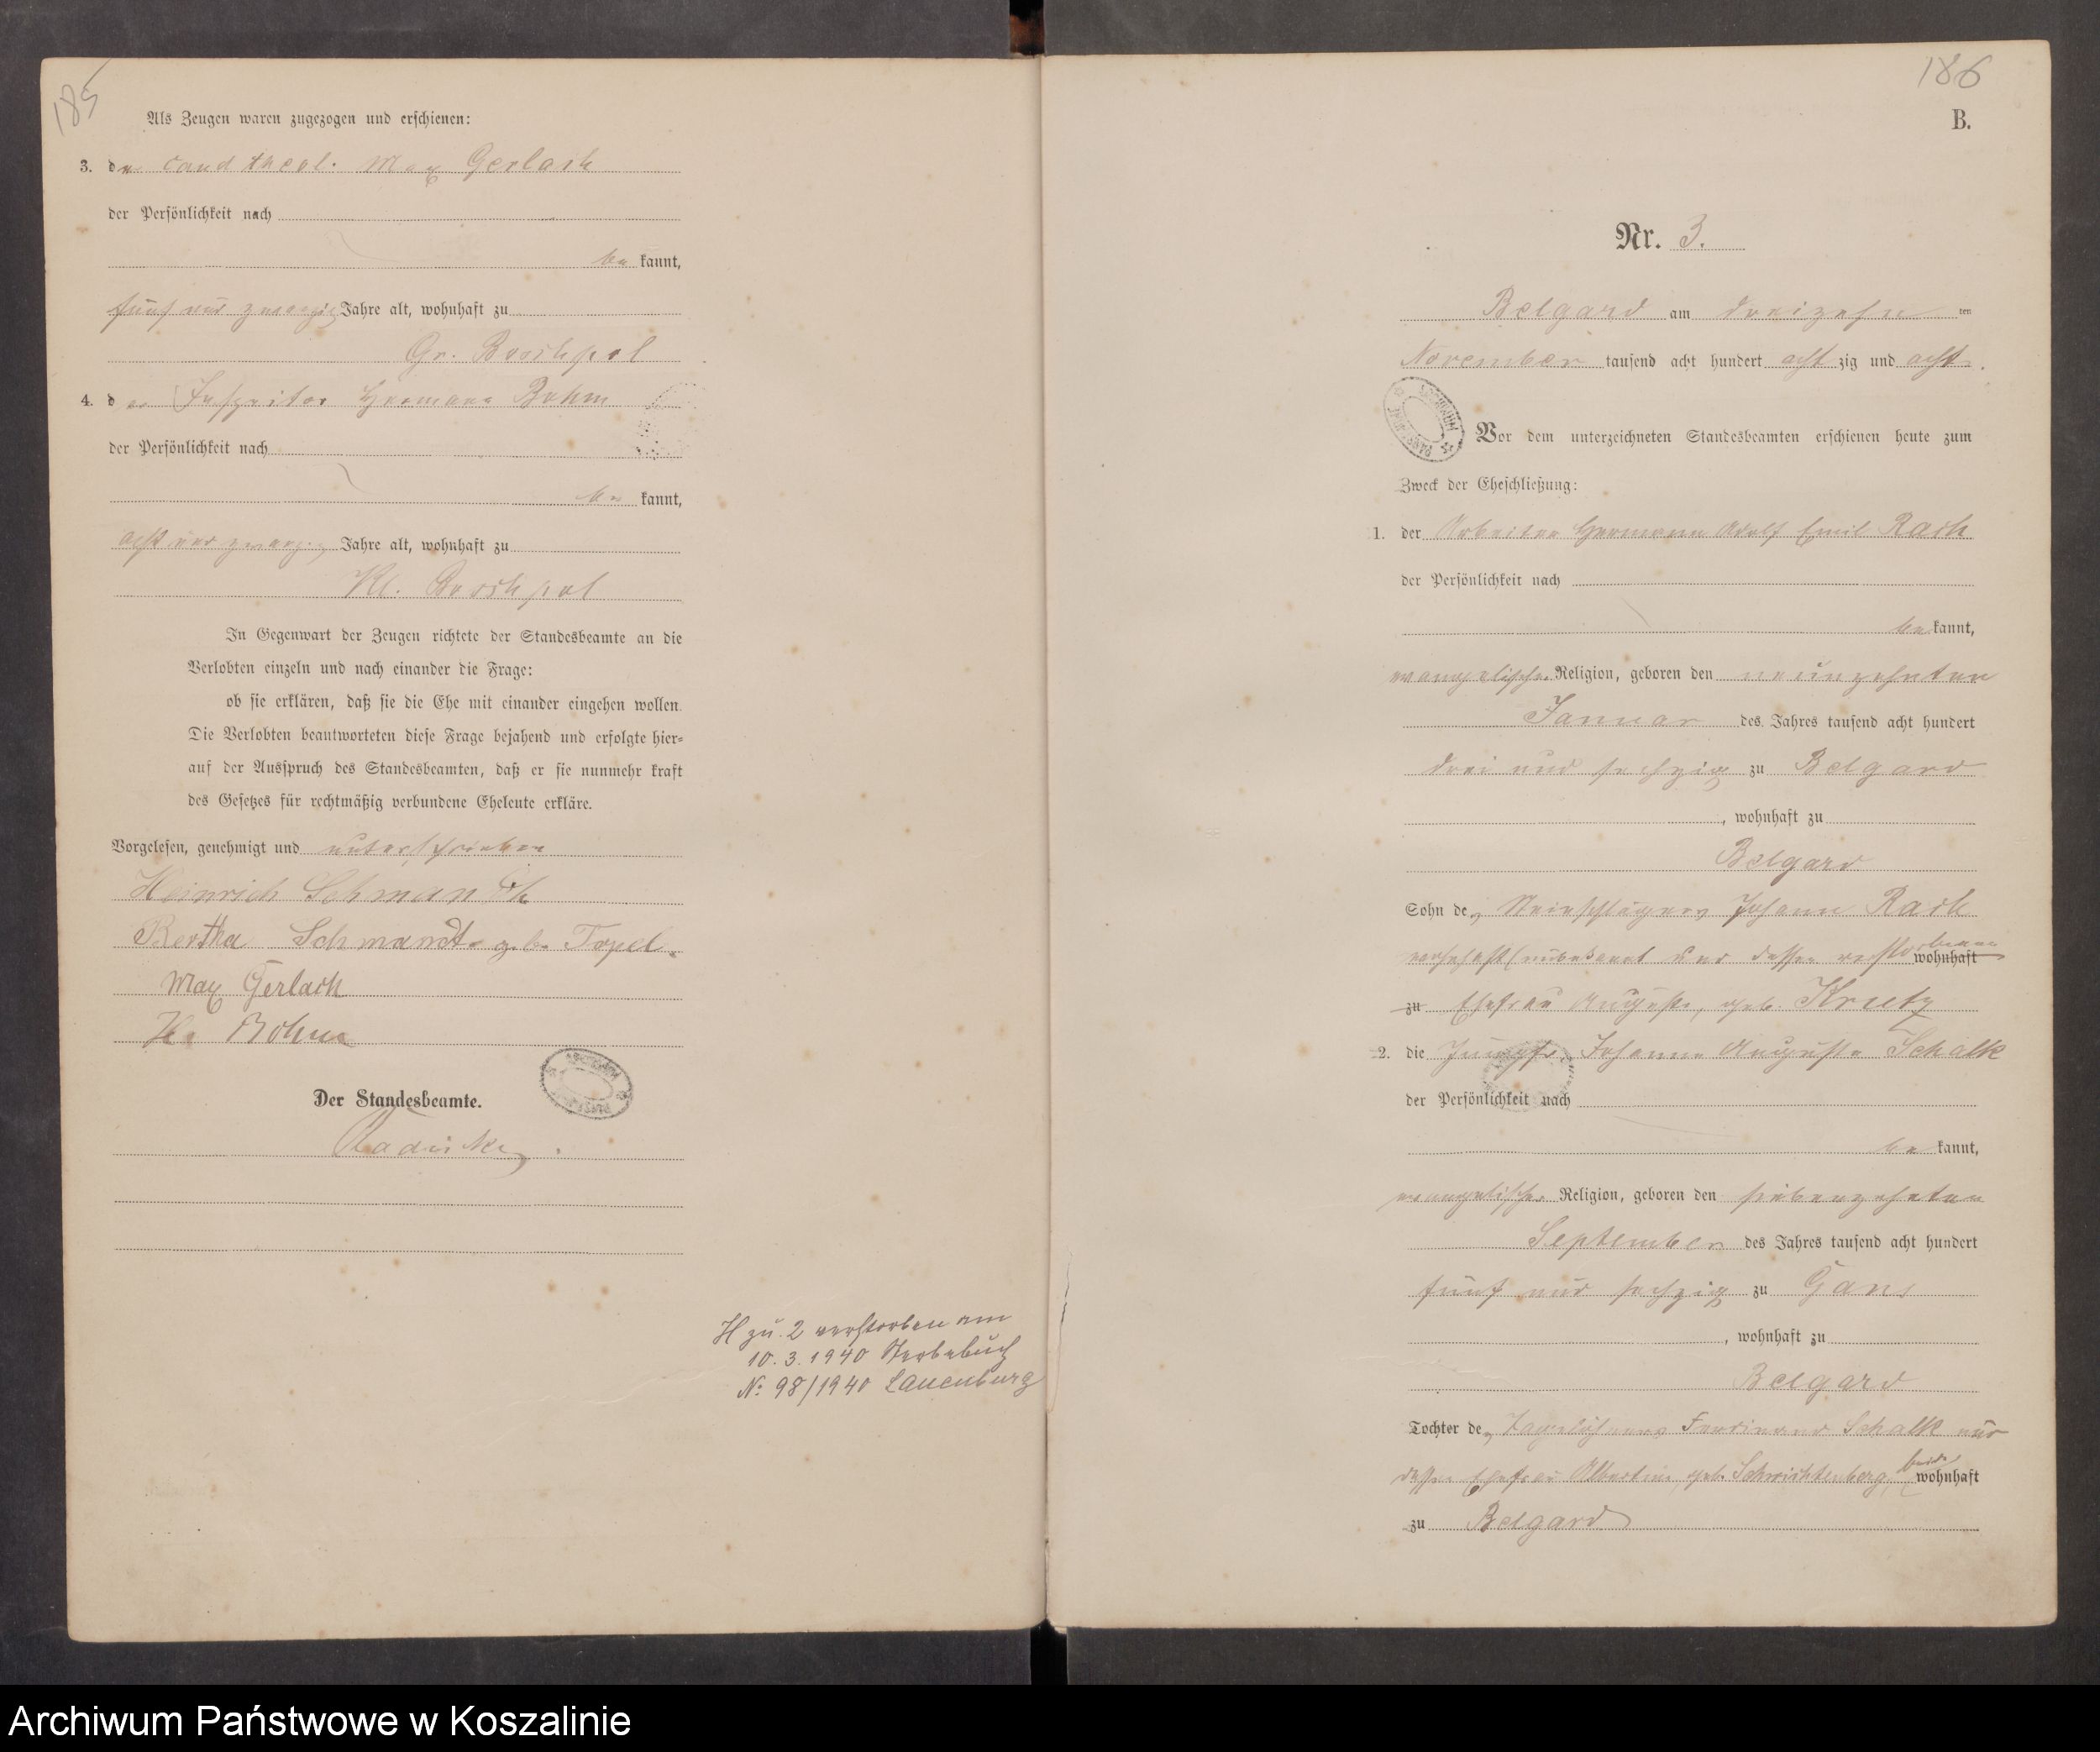 185
Als Zeugen waren zugezogen und erschienen:
3. der Cand theol. Max Gerlach
der Persönlichkeit nach
be kannt,
fünf und zwanzig Jahre alt, wohnhaft zu
Gr. Boschpol
4. der Inspector Hermann Bohm
der Persönlichkeit nach
be kannt,
acht und zwanzig Jahre alt, wohnhaft zu
Kl. Boschpol
In Gegenwart der Zeugen richtete der Standesbeamte an die
Verlobten einzeln und nach einander die Frage:
ob sie erklären, daß sie die Ehe mit einander eingehen wollen.
Die Verlobten beantworteten diese Frage bejahend und erfolgte hier-
auf der Ausspruch des Standesbeamten, daß er sie nunmehr kraft
des Gesetzes für rechtmäßig verbundene Eheleute erkläre.
Vorgelesen, genehmigt und unterschrieben
Heinrich Schmandt
Bertha Schmandt geb. Topel.
Max Gerlach
H. Bohm
Der Standesbeamte.
H zu. 2 verstorben am
10. 3. 1940 Sterbebuch
No 98/1940 Lauenburg
186
B.
Nr. 3.
Belgard am dreizehn ten
November tausend acht hundert acht zig und acht.
Vor dem unterzeichneten Standesbeamten erschienen heute zum
Zweck der Eheschließung:
1. der Arbeiter Hermann Adolf Emil Rach
der Persönlichkeit nach
be kannt,
evangelischer Religion, geboren den neunzehnten
Januar des Jahres tausend acht hundert
drei und sechzig zu Belgard
, wohnhaft zu
Belgard
Sohn des Steinschlägers Johann Rach
unbekannt und dessen verstorbenen wohnhaft
zu Ehefrau Auguste, geb. Krutz
2. die Jungfr. Johanne Auguste Schalk
der Persönlichkeit nach
be kannt,
evangelischer Religion, geboren den siebenzehnten
September des Jahres tausend acht hundert
fünf und sechzig zu Gans
, wohnhaft zu
Belgard
Tochter des Tagelöhners Ferdinand Schalk und
dessen Ehefrau Albertine, geb. Schwichtenberg, beide wohnhaft
zu Belgard
Archiwum Państwowe w Koszalinie